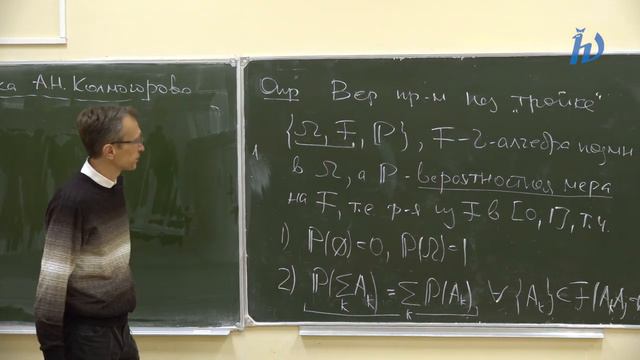 ка А.Н. Колмогорова
Опр Вер пр-м наз „тройка"
{Ω, F, P}, F-σ-алгебра подмн
в Ω, а P-вероятностная мера
на F, т.е. ф-я из F в [0,1], т.ч.
1) P(∅)=0, P(Ω)=1
2) P(∑ₖ Aₖ) = ∑ₖ P(Aₖ) ∀ {Aₖ} ∈ F (AₖAⱼ